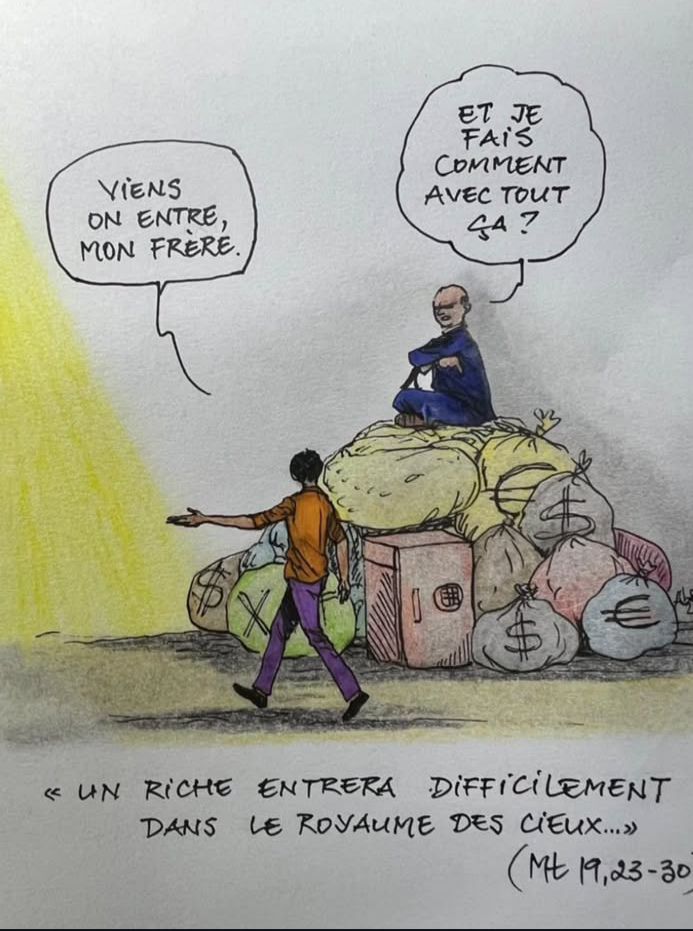 VIENS
ON ENTRE,
MON FRÈRE.
ET JE
FAIS
COMMENT
AVEC TOUT
ÇA ?
€
$
$
X
$
€
« UN RICHE ENTRERA DIFFICILEMENT
DANS LE ROYAUME DES CIEUX...»
(Mt 19,23-30)